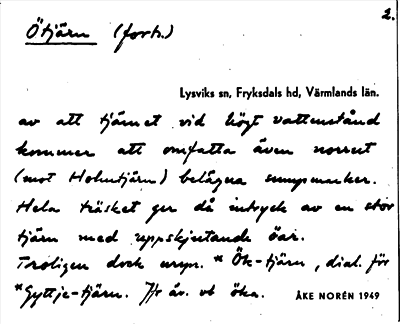 2.
Ötjärn (forts.)
Lysviks sn, Fryksdals hd, Värmlands län.
av att tjärnet vid högt vattenstånd
kommer att omfatta även norrut
(mot Holmtjärn) belägna sumpmarker.
Hela träsket ger då intryck av en stor
tjärn med uppskjutande öar.
Troligen dock urspr. *Ök-tjärn, dial. för
*Gyttje-tjärn. Jfr äv. vb öka.
ÅKE NORÉN 1949